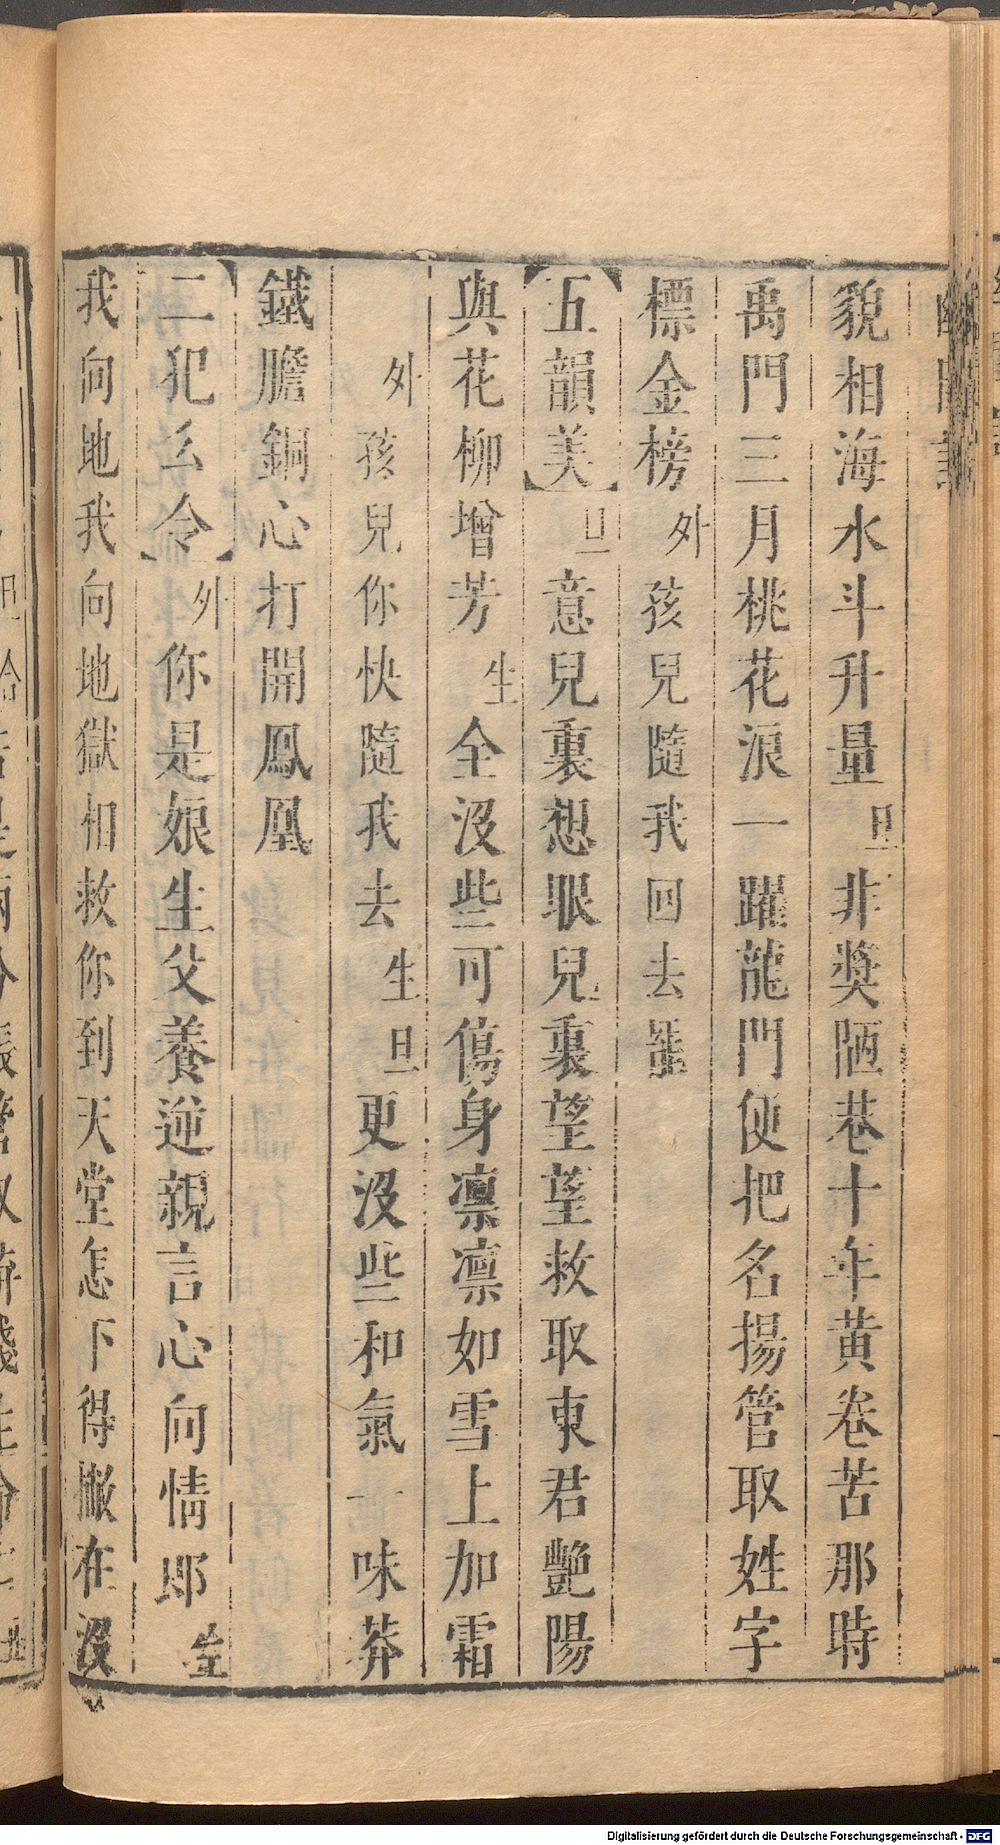 貌相海水斗升量旦非奬陋巷十年黄卷苦那時
禹門三月桃花浪一躍龍門便把名揚管取姓字
標金榜外孩兒隨我回去罷
【五韻美】旦意兒裏想眼兒裏望望救取東君艷陽
與花柳增芳生全沒些可傷身凛凛如雪上加霜
外孩兒你快隨我去生旦更沒些和氣一味莽
鐵膽銅心打開鳳凰
【二犯幺令】外你是娘生父養逆親言心向情郎生
我向地我向地獄相救你到天堂怎下得撇在沒
Digitalisierung gefördert durch die Deutsche Forschungsgemeinschaft - DFG